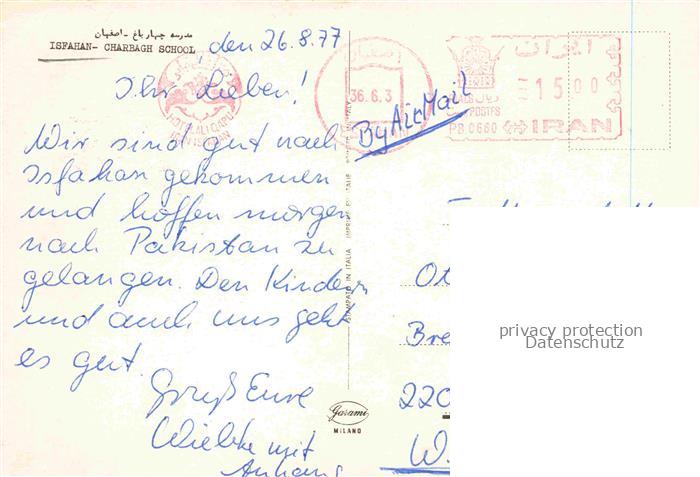 مدرسه چهارباغ - اصفهان
ISFAHAN- CHARBAGH SCHOOL
, den 26.8.77
Ihr Lieben!
Wir sind gut nach
Isfahan gekommen
und hoffen morgen
nach Pakistan zu
gelangen. Den Kindern
und auch uns geht
es gut.
Gruß Eure
Wiebke mit
Anhang
HOTEL ALI QAPU
36.6.3
ایران
1500
POSTES
PB.0660 IRAN
By Air Mail
STAMPATO IN ITALIA
Garami
MILANO
Bre
220
W.
privacy protection
Datenschutz